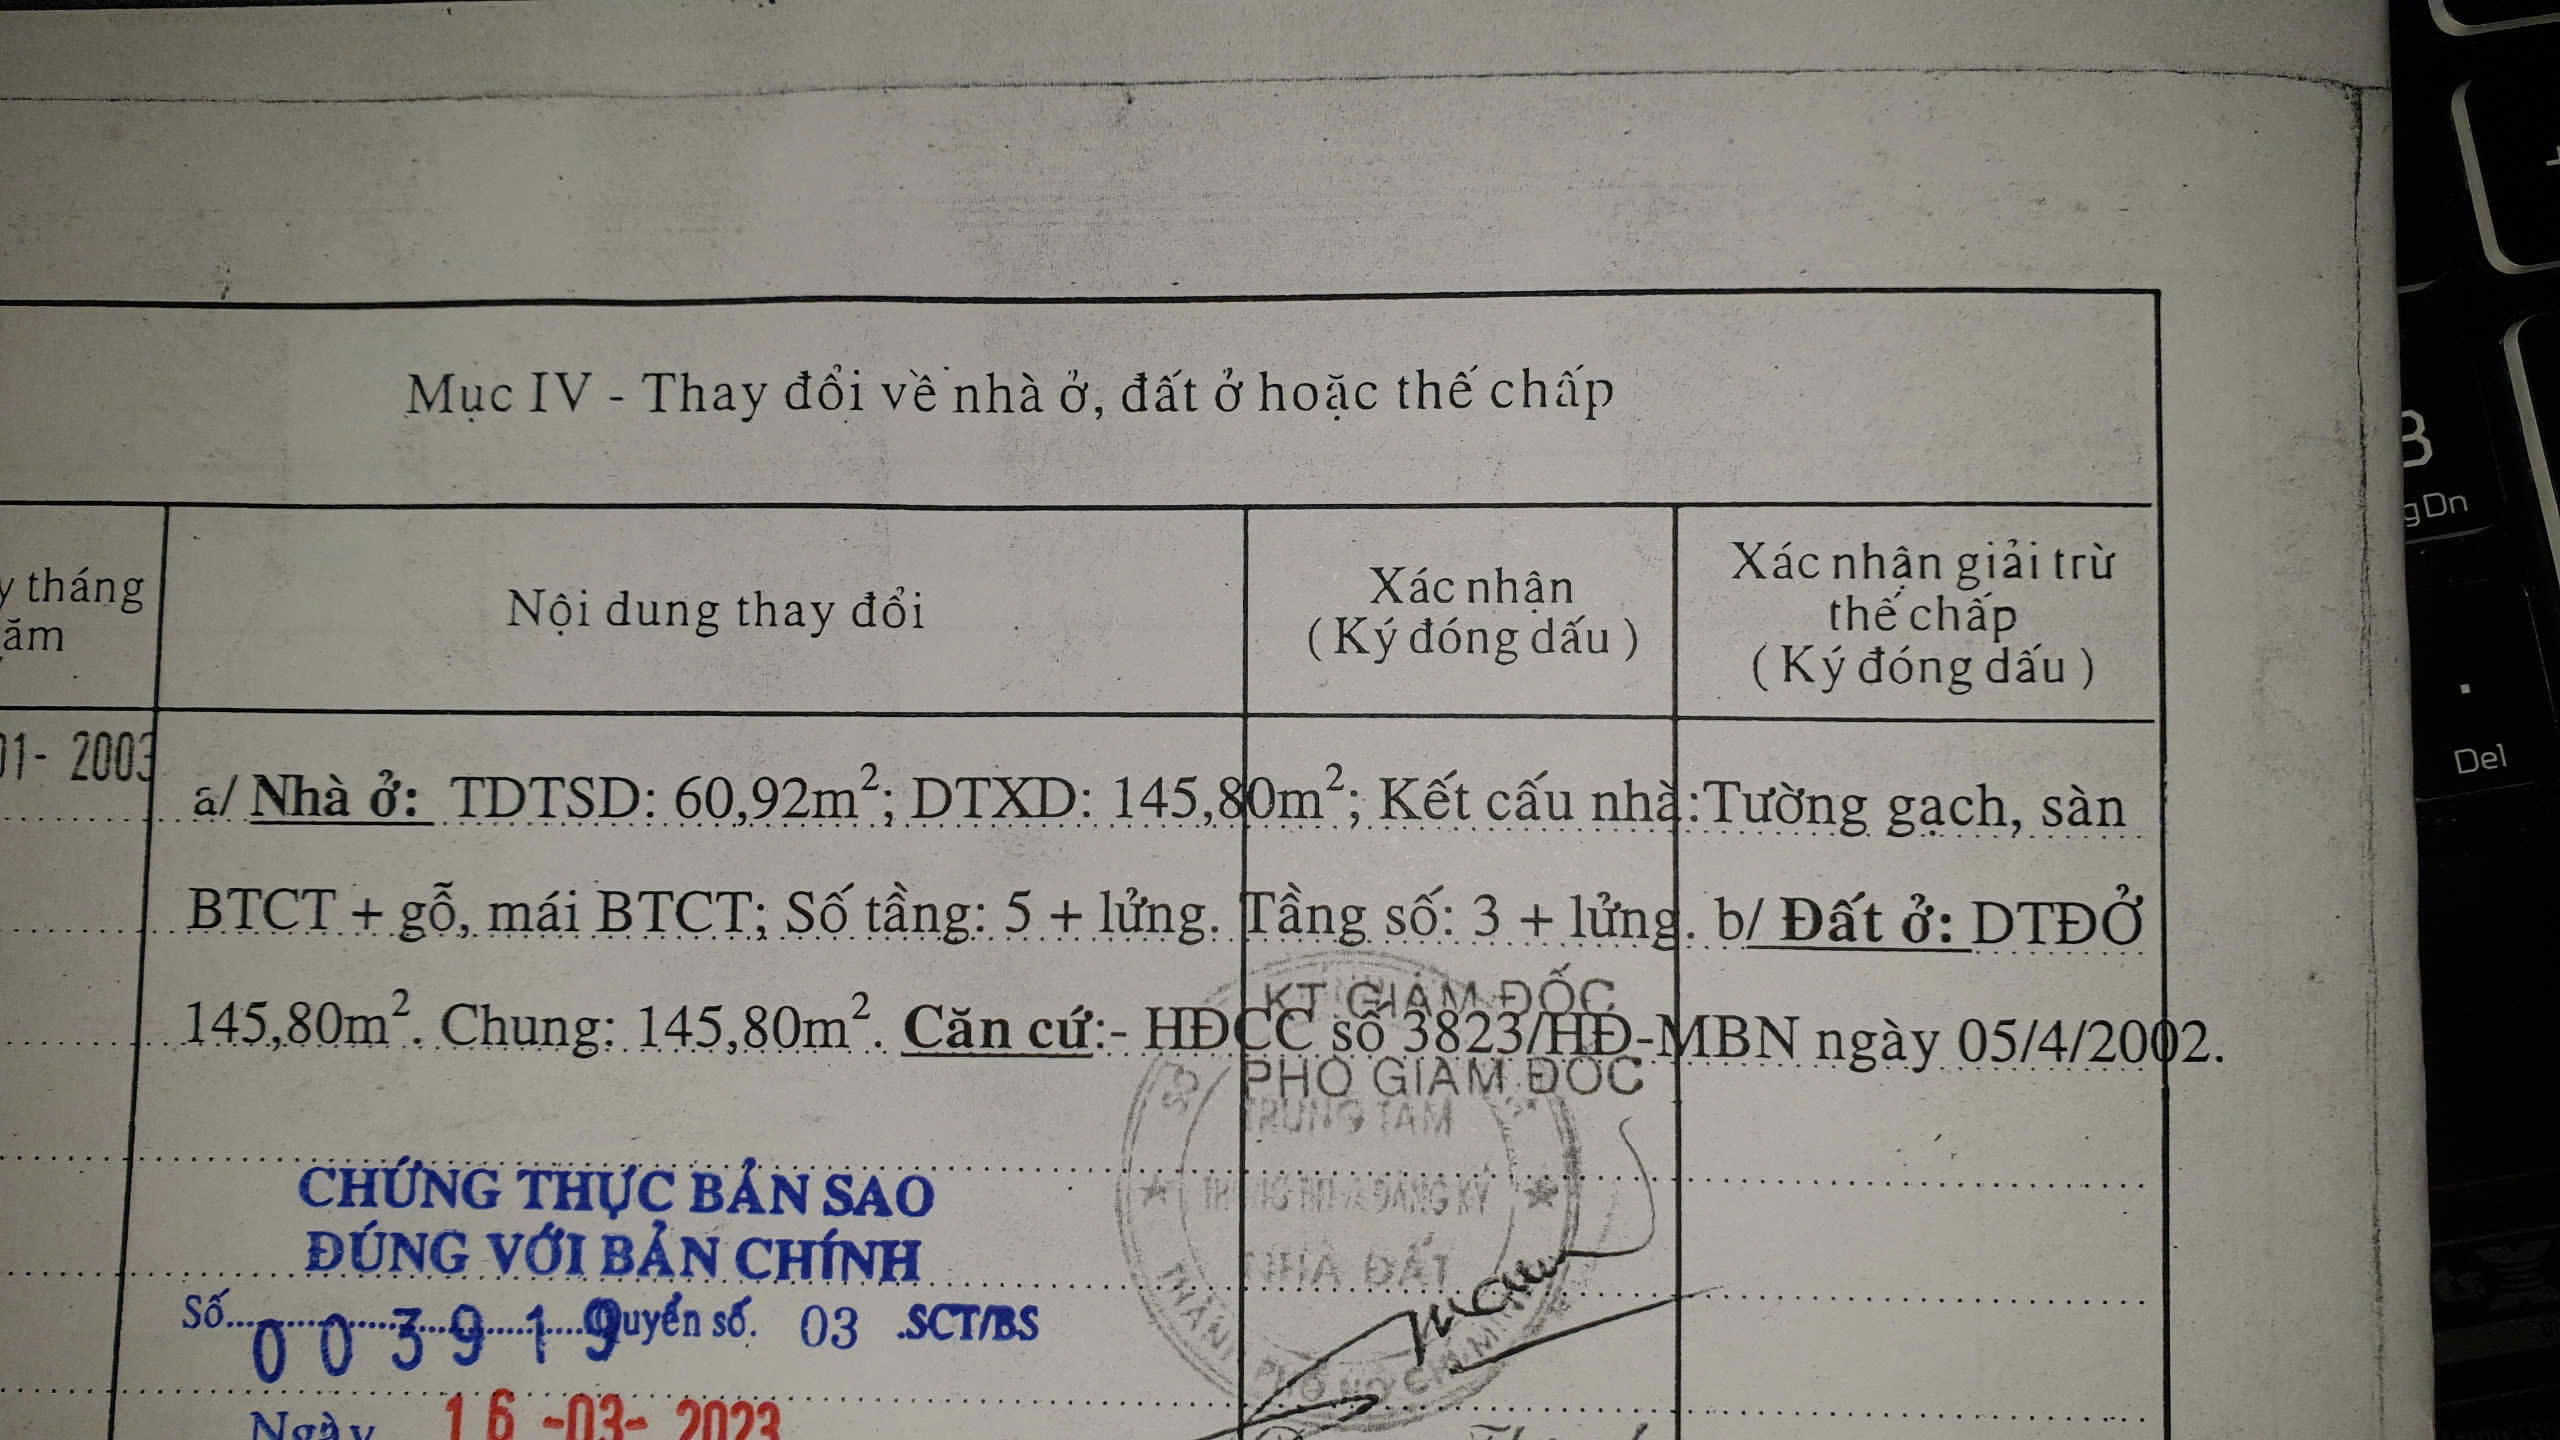 Mục IV - Thay đổi về nhà ở, đất ở hoặc thế chấp
tháng
Nội dung thay đổi
Xác nhận
( Ký đóng dấu )
Xác nhận giải trừ
thế chấp
( Ký đóng dấu )
01- 2003
a/ Nhà ở: TDTSD: 60,92m²; DTXD: 145,80m²; Kết cấu nhà:Tường gạch, sàn
BTCT + gỗ, mái BTCT; Số tầng: 5 + lửng. Tầng số: 3 + lửng. b/ Đất ở: DTĐỞ
145,80m². Chung: 145,80m². Căn cứ:- HĐCC số 3823/HĐ-MBN ngày 05/4/2002.
KT GIÁM ĐỐC
PHÓ GIÁM ĐỐC
TRUNG TÂM
NHÀ ĐẤT
CHỨNG THỰC BẢN SAO
ĐÚNG VỚI BẢN CHÍNH
Số 003919 Quyển số. 03 .SCT/BS
Ngày 16 -03- 2023
Del